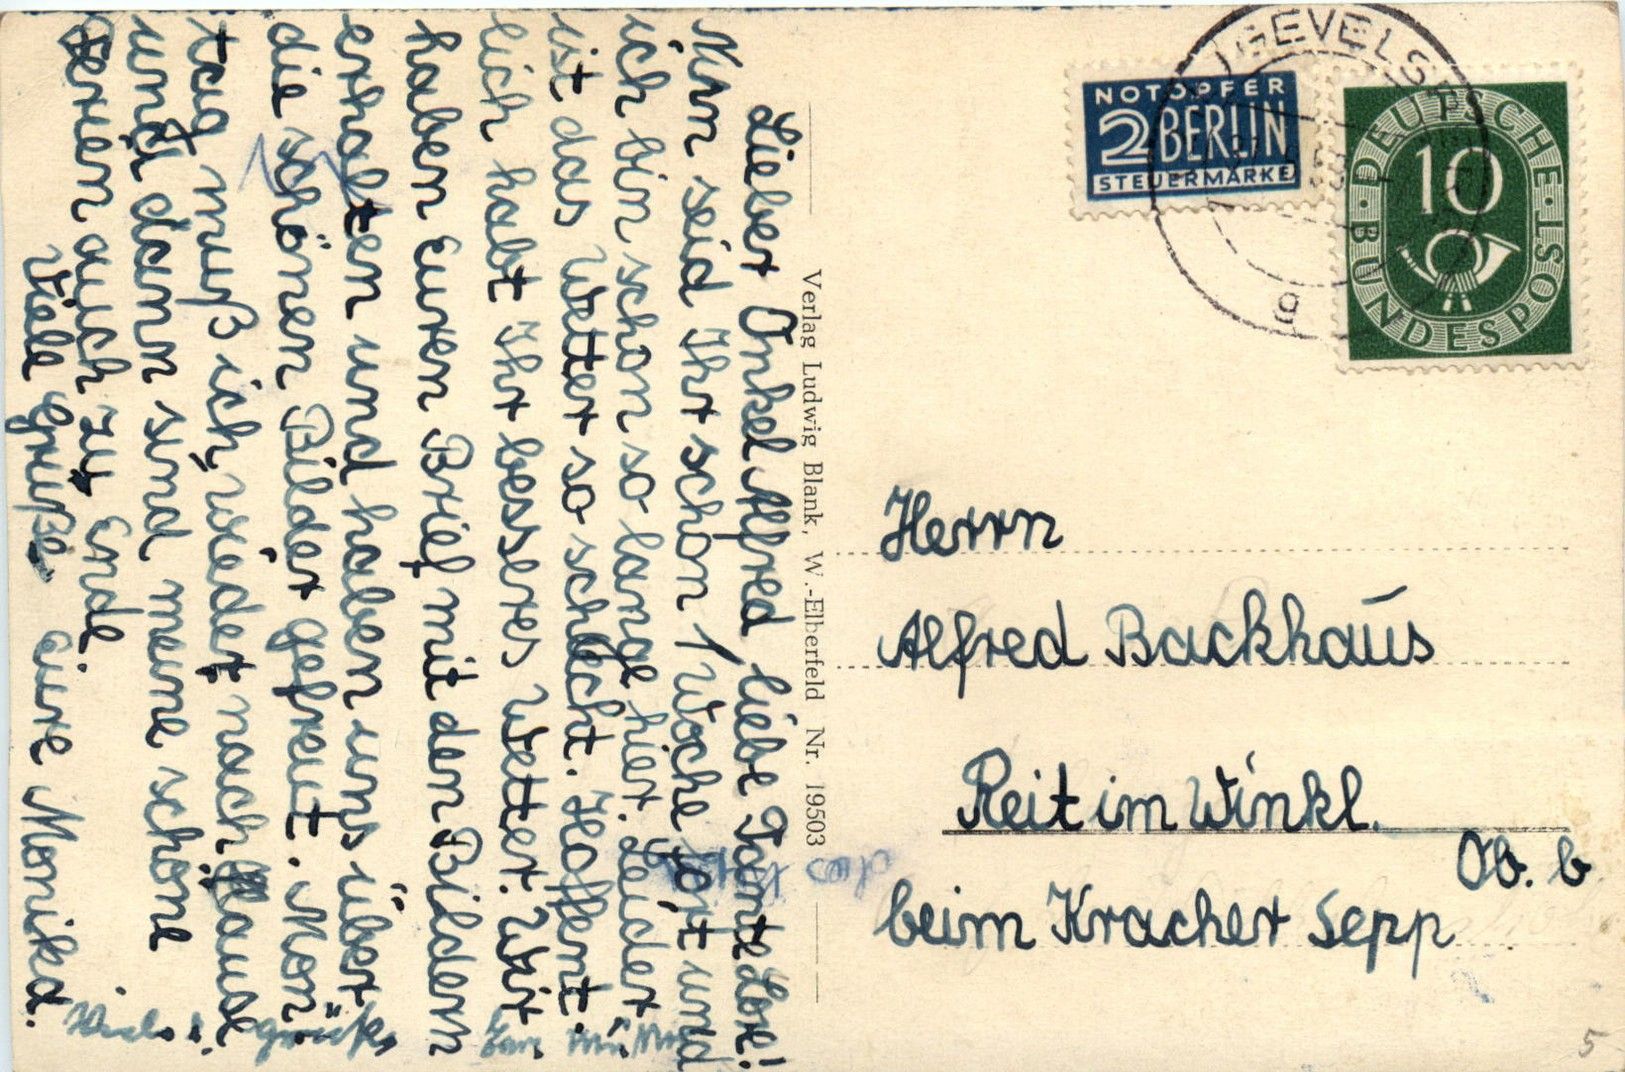 Lieber Onkel Alfred liebe Tante Lore!
Nun seid Ihr schon 1 Woche fort und
ich bin schon so lange hier. Leider
ist das Wetter so schlecht. Hoffent-
lich habt Ihr besseres Wetter. Wir
haben Euren Brief mit den Bildern
erhalten und haben uns über
die schönen Bilder gefreut. Mon
tag muß ich wieder nach Hause
und dann sind meine schöne
Ferien auch zu Ende.
Viele Grüße eure Monika.
Verlag Ludwig Blank, W.-Elberfeld Nr. 19503
NOTOPFER
2 BERLIN
STEUERMARKE
GEVELSB
DEUTSCHE BUNDESPOST
10
Herrn
Alfred Backhaus
Reit im Winkl.
Ob. b
beim Kracher Sepp
5